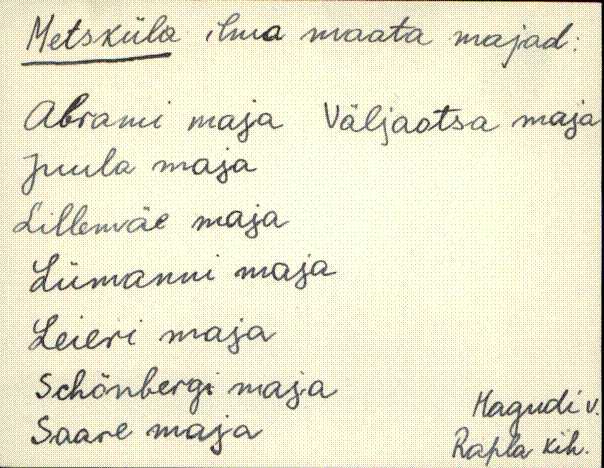 Metsküla ilma maata majad:
Abrami maja Väljaotsa maja
Juula maja
Lillemäe maja
Liimanni maja
Leieri maja
Schönbergi maja
Saare maja
Hagudi v.
Rapla kih.